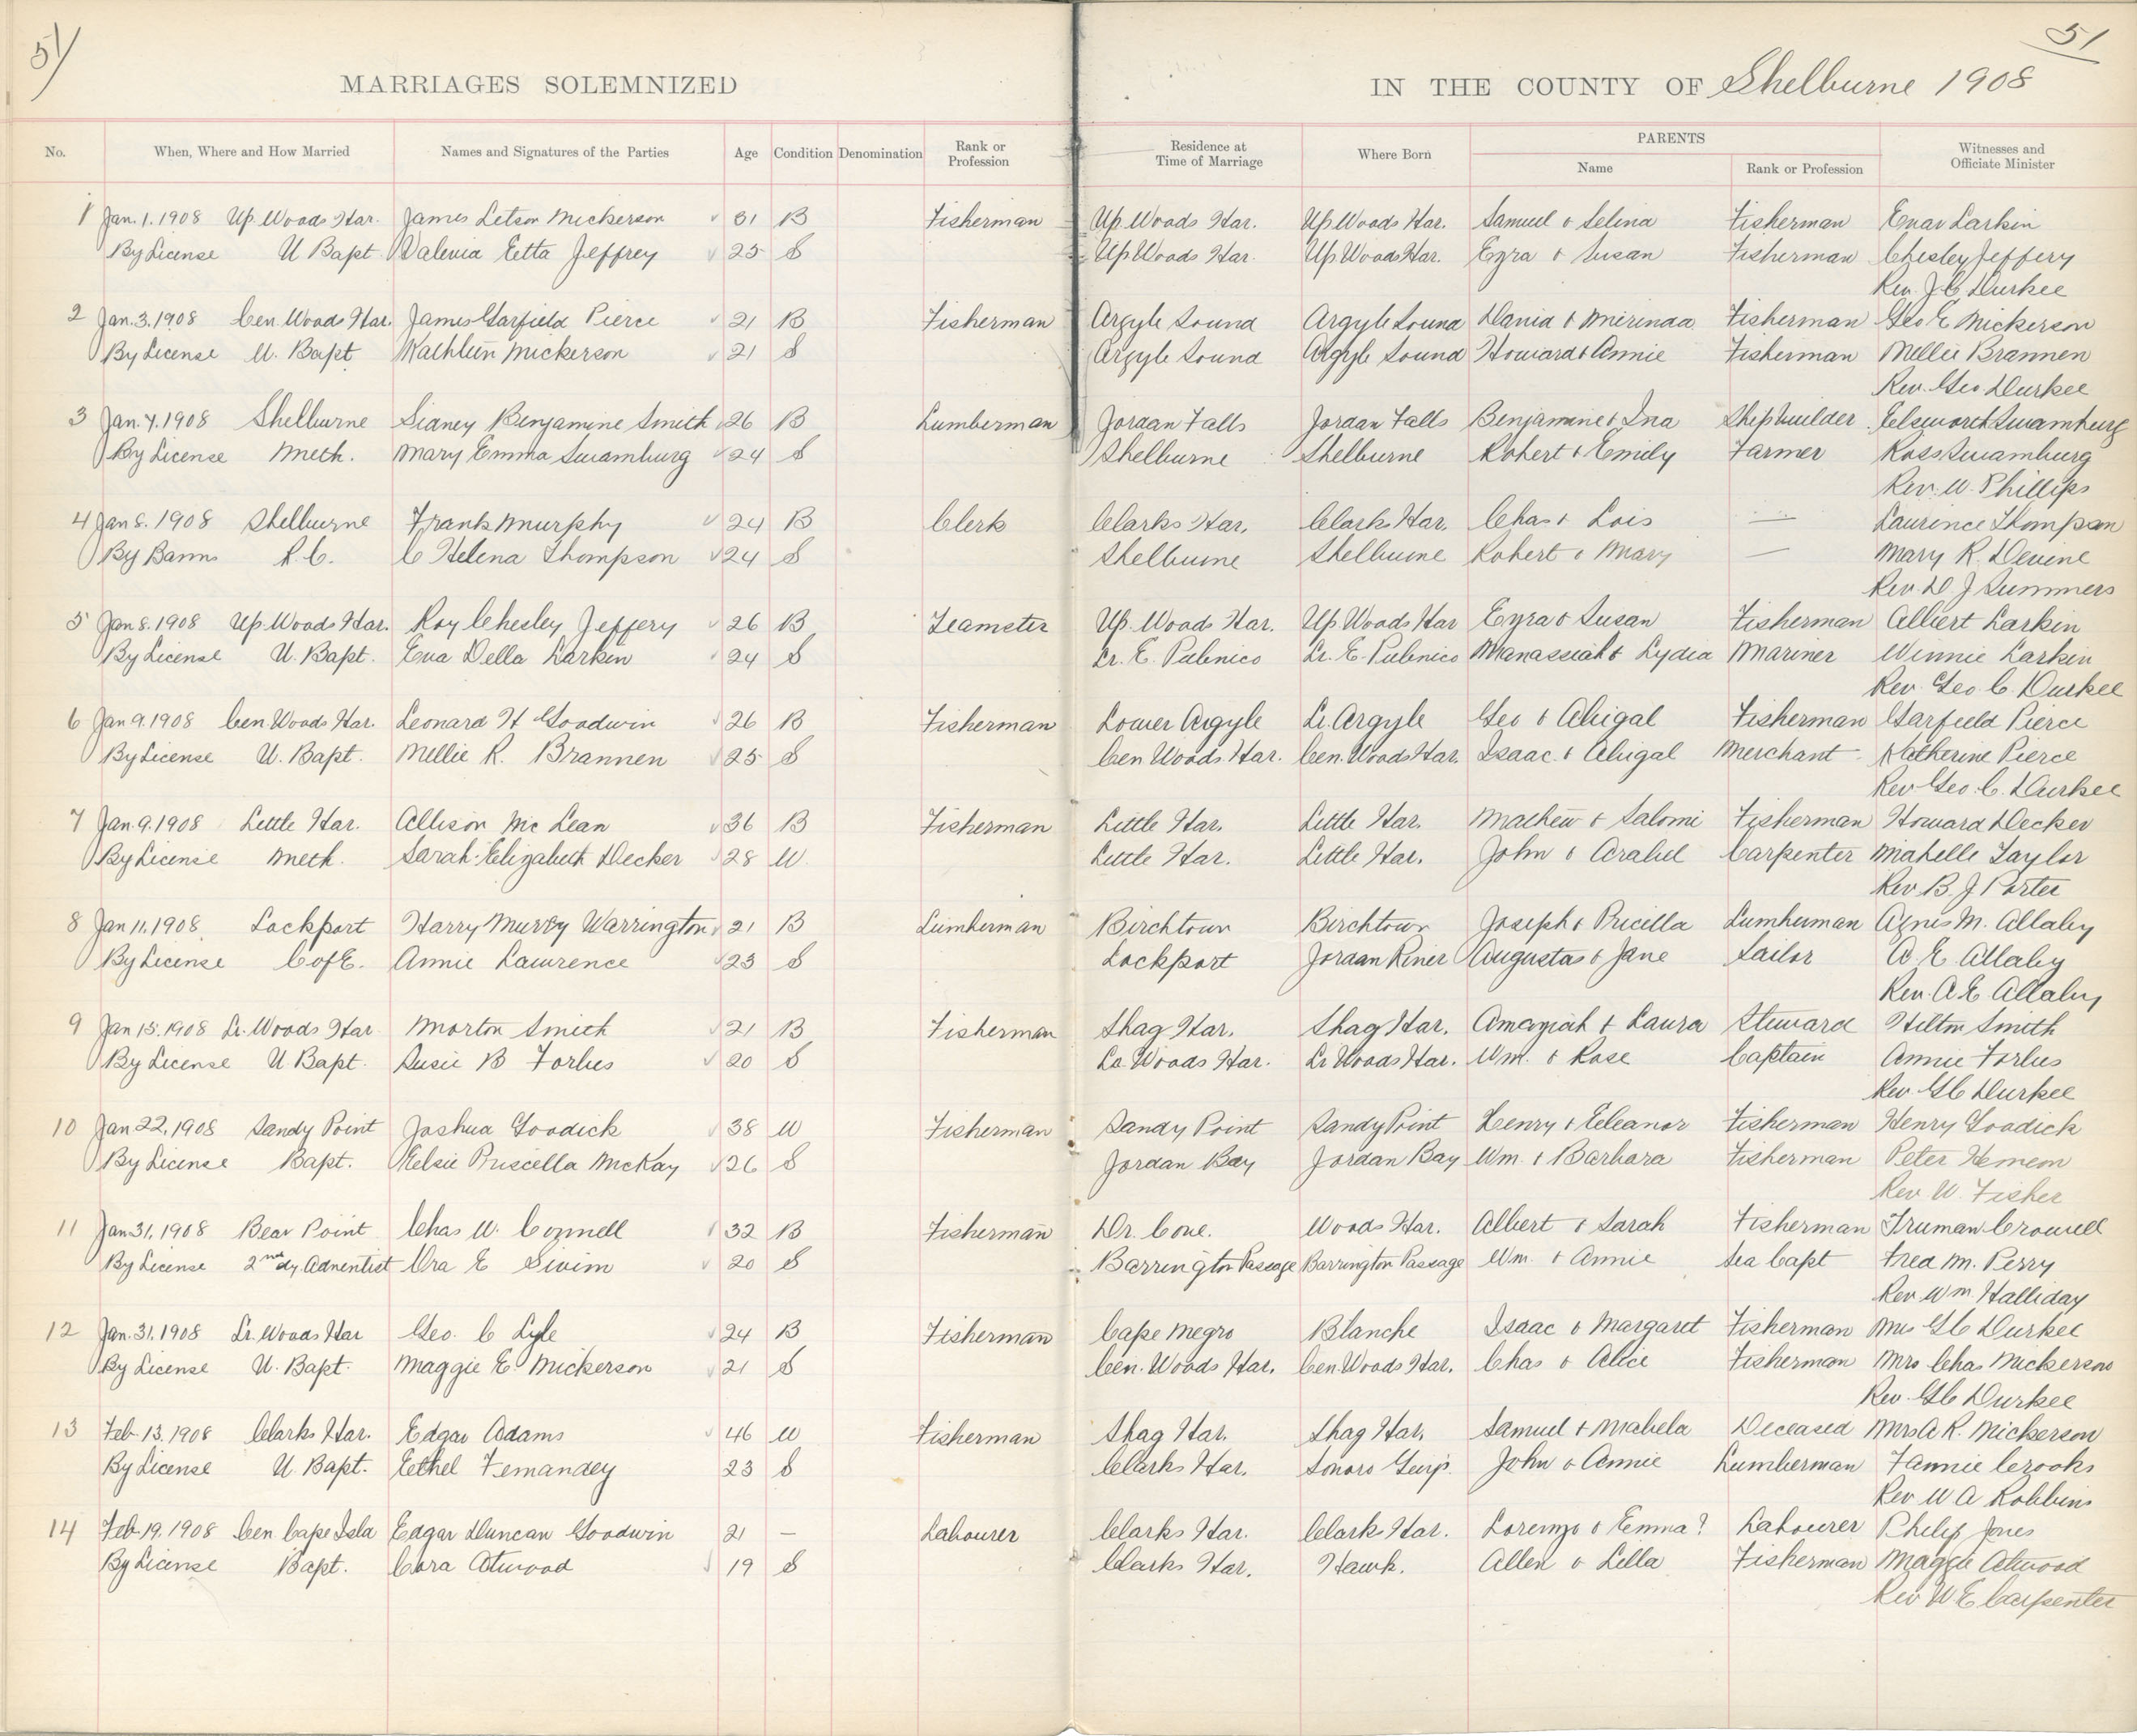 51
51
MARRIAGES SOLEMNIZED IN THE COUNTY OF Shelburne 1908
No. When, Where and How Married Names and Signatures of the Parties Age Condition Denomination Rank or Profession Residence at Time of Marriage Where Born PARENTS Name Rank or Profession Witnesses and Officiate Minister
1 Jan. 1. 1908 Up. Woods Har. James Letson Nickerson 31 B Fisherman Up. Woods Har. Up. Woods Har. Samuel & Selina Fisherman Larkin
By License U Bapt Etta Jeffrey 25 S Up Woods Har. Up Woods Har. Ezra & Susan Fisherman Chesley Jeffery
Rev. J. C. Durkee
2 Jan. 3. 1908 Cen. Woods Har. James Garfield Pierce 21 B Fisherman Argyle Sound Argyle Sound David & Mirinda Fisherman Geo E Nickerson
By License U. Bapt. Kathleen Nickerson 21 S Argyle Sound Argyle Sound Howard & Annie Fisherman Mellie Brannen
Rev. Geo Durkee
3 Jan. 7. 1908 Shelburne Sidney Benjamine Smith 26 B Lumberman Jordan Falls Jordan Falls Benjamine & Ina Shipbuilder Swamburg
By License Meth. Mary Emma Swamburg 24 S Shelburne Shelburne Robert & Emily Farmer Ross Swamburg
Rev. W. Phillips
4 Jan 8. 1908 Shelburne Frank Murphy 24 B Clerk Clarks Har. Clarks Har. Chas & Lois — Laurince Thompson
By Banns R. C. C Helena Thompson 24 S Shelburne Shelburne Robert & Mary — Mary R. Devine
Rev D J Summers
5 Jan 8. 1908 Up Woods Har. Roy Chesley Jeffery 26 B Teamster Up. Woods Har. Up Woods Har Ezra & Susan Fisherman Albert Larkin
By License U. Bapt. Eva Della Larkin 24 S Lr. E. Pubnico Lr. E. Pubnico Manassiah & Lydia Mariner Winnie Larkin
Rev. Geo. C. Durkee
6 Jan 9. 1908 Cen Woods Har. Leonard H Goodwin 26 B Fisherman Lower Argyle Lr. Argyle Geo & Abigal Fisherman Garfield Pierce
By License U. Bapt. Mellie R. Brannen 25 S Cen Woods Har. Cen. Woods Har. Isaac. & Abigal Merchant Katherine Pierce
Rev Geo. C. Durkee
7 Jan. 9. 1908 Little Har. Allison Mc Lean 36 B Fisherman Little Har. Little Har. Mathew & Salomi Fisherman Howard Decker
By License Meth. Sarah Elizabeth Decker 28 W. Little Har. Little Har. John & Arabel Carpenter Mabelle Taylor
Rev B. J Porter
8 Jan 11. 1908. Lockport Harry Murry Warrington 21 B Lumberman Birchtown Birchtown Joseph & Pricilla Lumberman Agnes M. Allaby
By License C of E. Annie Lawrence 23 S Lockport Jordan River Augustas & Jane Sailor A. E. Allaby
Rev. A. E Allaby
9 Jan 15. 1908 Lr. Woods Har Morton Smith 21 B Fisherman Shag Har. Shag Har. Amaziah & Laura Steward Hilton Smith
By License U Bapt. Susie B Forbes 20 S Lo. Woods Har. Lr Woods Har. Wm. & Rose Captain Annie Forbes
Rev. G C Durkee
10 Jan 22, 1908 Sandy Point Joshua Goodick 38 W Fisherman Sandy Point Sandy Point Henry & Eleanor Fisherman Henry Goodick
By License Bapt. Elsie Priscella McKay 26 S Jordan Bay Jordan Bay Wm. & Barbara Fisherman Peter
Rev W. Fisher
11 Jan 31, 1908 Bear Point Chas W. 32 B Fisherman Dr. Cove. Woods Har. Albert & Sarah Fisherman Truman Crowell
By License 2nd dy. Adventist Ora E Swim 20 S Barrington Passage Barrington Passage Wm. & Annie Sea Capt Fred M. Perry
Rev Wm. Halliday
12 Jan. 31. 1908 Lr. Woods Har Geo. C Lyle 24 B Fisherman Cape Negro Blanche Isaac & Margaret Fisherman Mrs G C Durkee
By License U. Bapt. Maggie E Nickerson 21 S Cen. Woods Har. Cen Woods Har. Chas & Alice Fisherman Mrs Chas Nickerson
Rev. G C Durkee
13 Feb 13. 1908 Clarks Har. Edgar Adams 46 W Fisherman Shag Har. Shag Har. Samuel & Mahela Deceased Mrs A R. Nickerson
By License U Bapt. Ethel 23 S Clarks Har. John & Annie Lumberman Fannie Crooks
Rev W A Robbins
14 Feb 19. 1908 Cen Cape Isld Edgar Duncan Goodwin 21 — Labourer Clarks Har. Clarks Har. Lorenzo & Emma? Labourer Philip Jones
By License Bapt. Cora Atwood 19 S Clarks Har. Hawk. Allen & Lilla Fisherman Maggie Atwood
Rev W E Carpenter